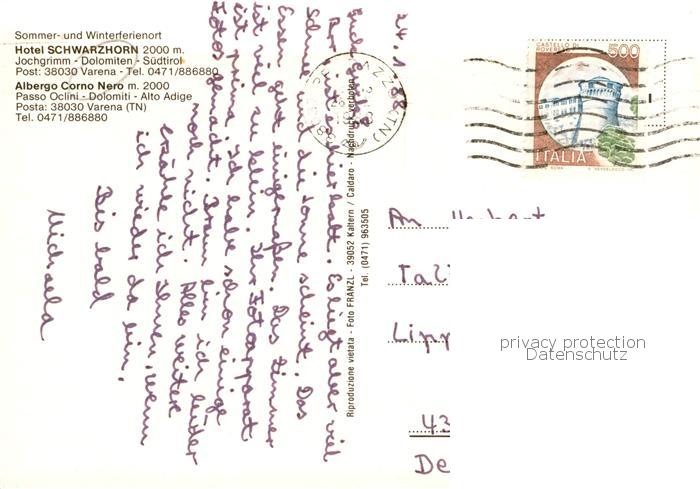 Sommer- und Winterferienort
Hotel SCHWARZHORN 2000 m.
Jochgrimm - Dolomiten - Südtirol
Post: 38030 Varena - Tel. 0471/886880
Albergo Corno Nero m. 2000
Passo Oclini - Dolomiti - Alto Adige
Posta: 38030 Varena (TN)
Tel. 0471/886880
24.1.88
hier kalt. Es liegt aber viel
Schnee und die Sonne scheint. Das
Essen geht einigermaßen. Das Zimmer
ist viel zu klein. Ihr Fotoapparat
ist prima. Ich habe schon einige
Fotos gemacht. Braun bin ich leider
noch nicht. Alles weitere
erzähle ich Ihnen, wenn
ich wieder da bin.
Bis bald
Michaela
Riproduzione vietata - Foto FRANZL - 39052 Kaltern / Caldaro - Nachdruck verboten
Tel. (0471) 963505
CASTELLO DI
500
ITALIA
(TN)
An Herbert
Tali
Lipp
43
De
privacy protection
Datenschutz